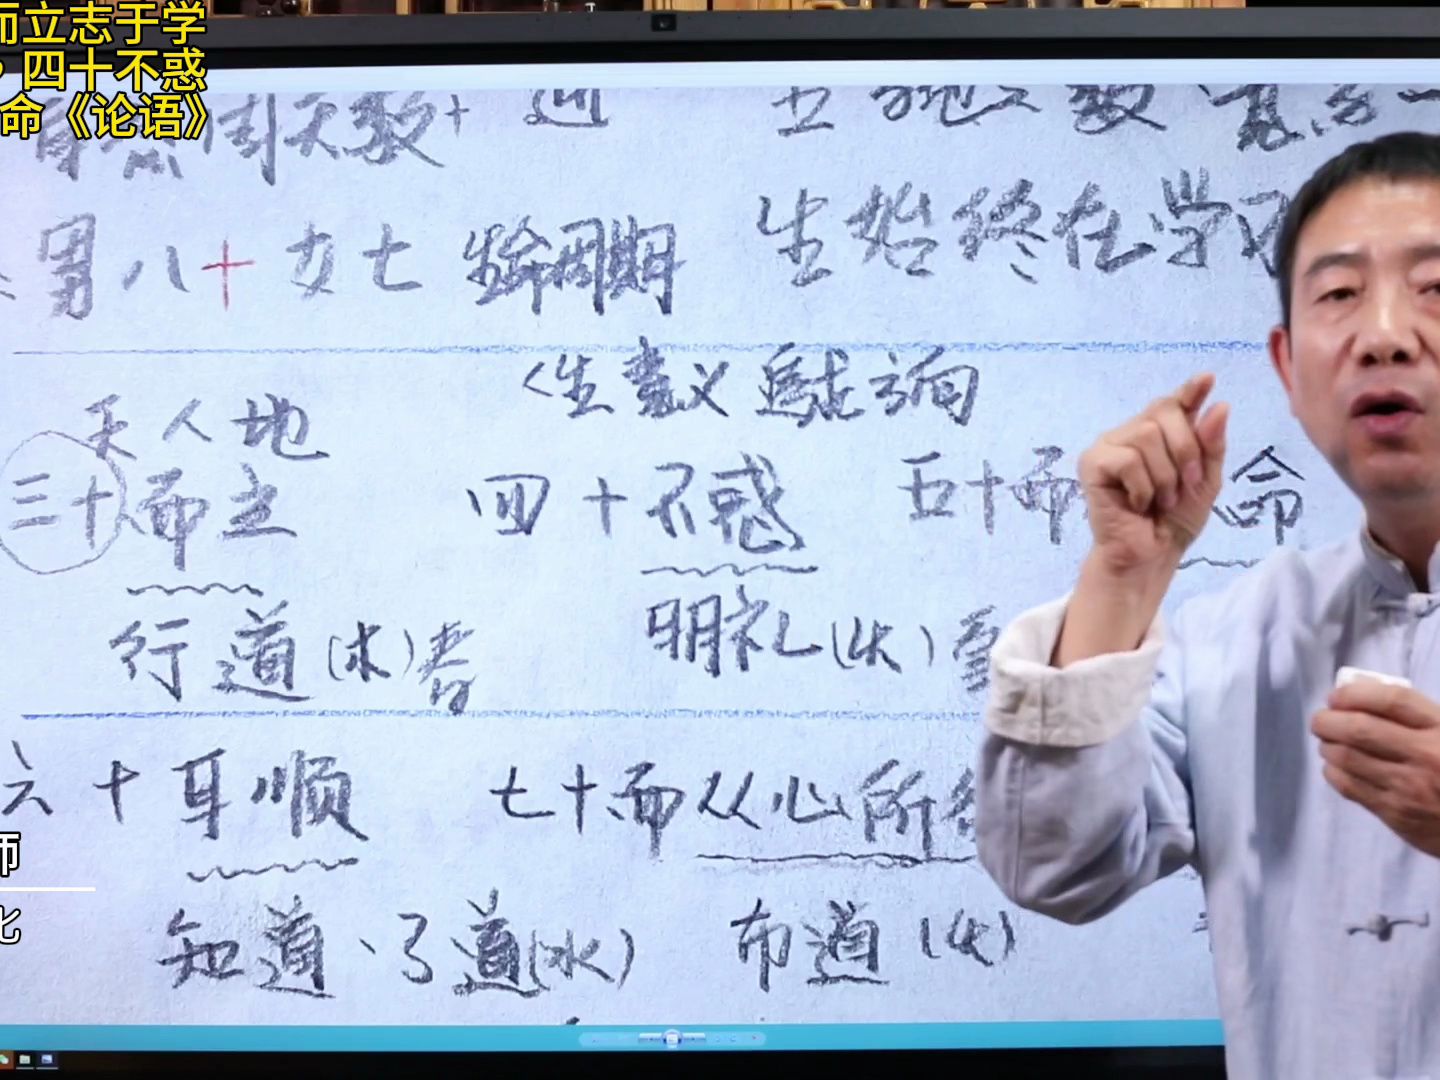 而立志于学
，四十不惑
命《论语》
周天数+
男八十女七 生命周期
生始终在学习
天人地
三十而立 四十不惑 五十而 命
行道(木)春
明礼(火)夏
六十耳顺 七十而从心所
师
化
知道、了道(水) 布道(火)